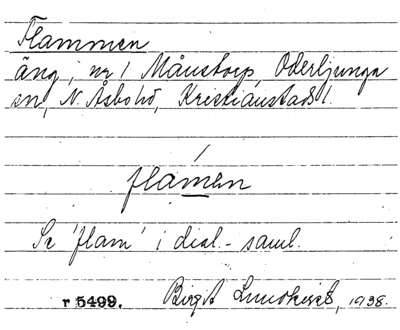 Flammen
äng, nr 1 Månstorp, Oderljunga
sn, N. Åsbo hd, Kristianstads l.
flámen
Se 'flam' i dial.-saml.
r 5499. Birgit Lundkvist, 1938.